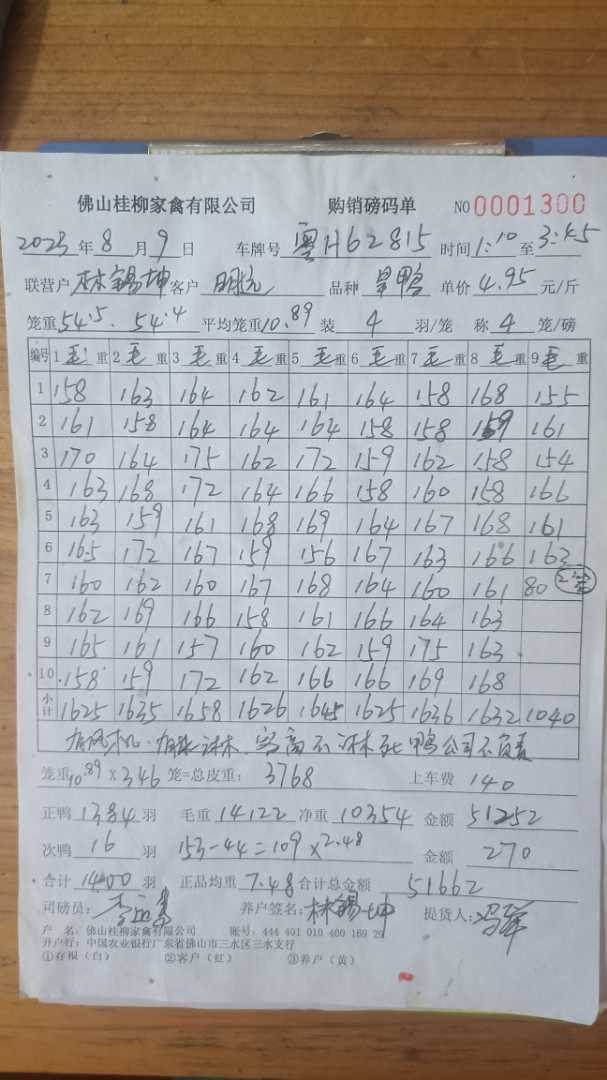 佛山桂柳家禽有限公司 购销磅码单 NO 0001300
2023年 8 月 9 日 车牌号 粤H62815 时间 1:10 至 3:45
联营户 林锡坤 客户 品种 鸭 单价 4.95 元/斤
笼重 54.5. 54.4 平均笼重 10.89 装 4 羽/笼 称 4 笼/磅
编号 1 毛 重 2 毛 重 3 毛 重 4 毛 重 5 毛 重 6 毛 重 7 毛 重 8 毛 重 9 毛 重
1 158 163 164 162 161 164 158 168 155
2 161 158 164 164 164 158 158 159 161
3 170 164 175 162 172 159 162 158 154
4 163 168 172 164 166 158 160 158 166
5 163 159 161 168 169 164 167 168 161
6 165 172 167 159 156 167 163 166 163
7 160 162 160 167 168 164 160 161 80 2笼
8 162 169 166 158 161 166 164 163
9 165 161 157 160 162 159 175 163
10 158 159 172 162 166 166 169 168
小计 1625 1635 1658 1626 1645 1625 1636 1632 1040
有风机. 有 淋. 不淋 死鸭公司不负责
笼重 10.89 × 346 笼=总皮重: 3768 上车费 140
正鸭 1384 羽 毛重 14122 净重 10354 金额 51252
次鸭 16 羽 153-44=109×2.48 金额 270
合计 1400 羽 正品均重 7.48 合计总金额 51662
司磅员: 养户签名: 林锡坤 提货人:
户 名: 佛山桂柳家禽有限公司 账号: 444 401 010 400 169 29
开户行: 中国农业银行广东省佛山市三水区三水支行
①存根（白） ②客户（红） ③养户（黄）